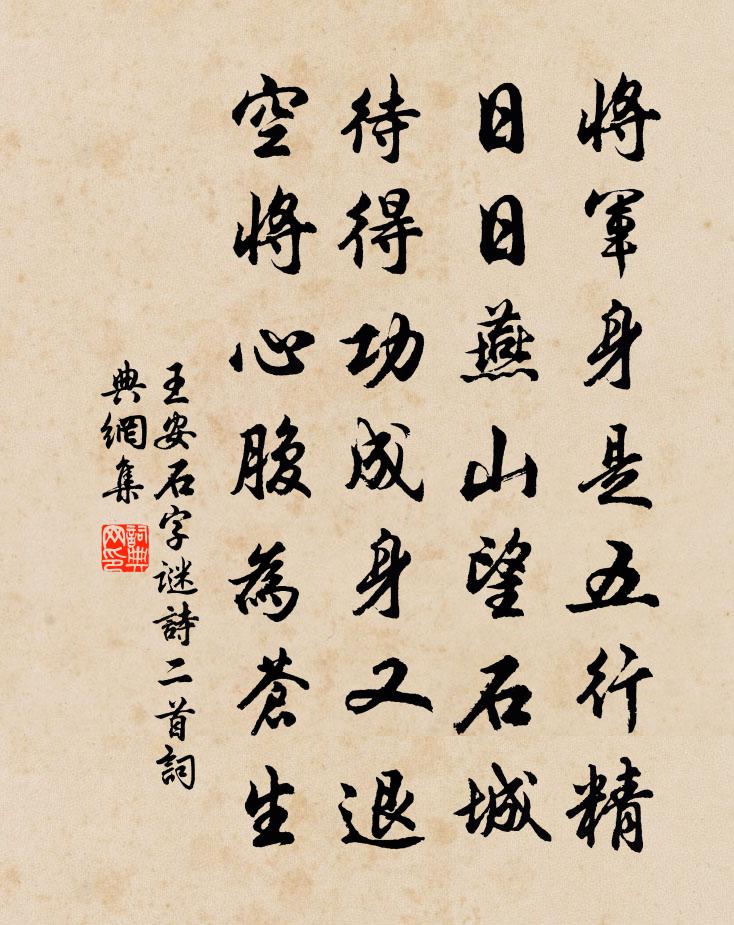 將軍身是五行精
日日燕山望石城
待得功成身又退
空將心腹為蒼生
王安石字謎詩二首詞
典網集
詞典網印